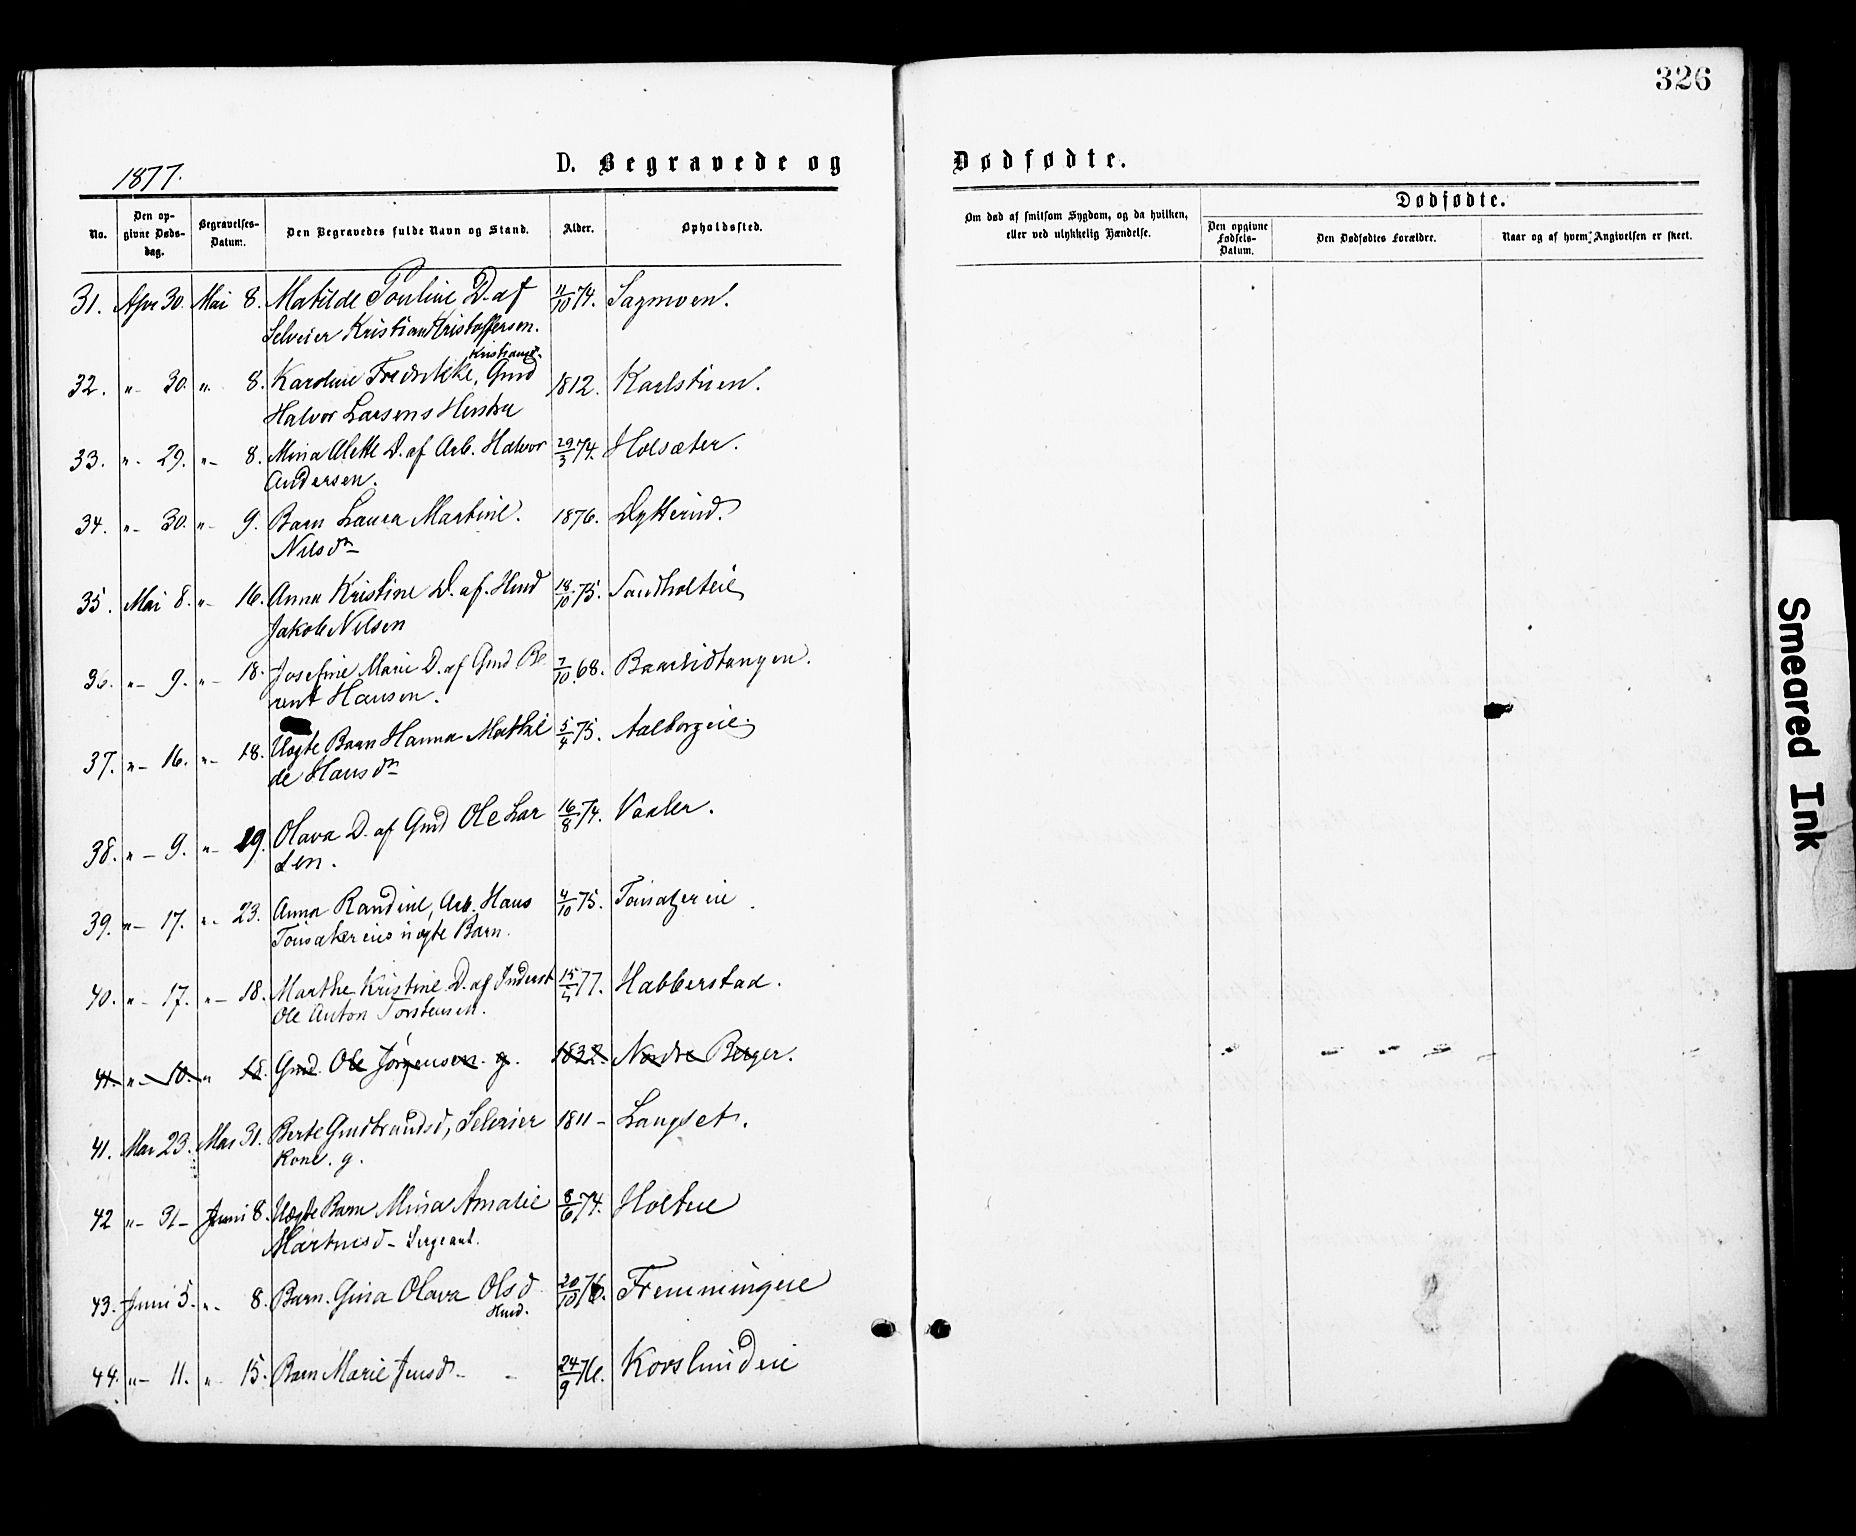 326
1877. D. Begravede og Dødfødte.
No. Den opgivne Døds-dag. Begravelses-Datum. Den Begravedes fulde Navn og Stand. Alder. Opholdssted. Om død af smitsom Sygdom, og da hvilken, eller ved ulykkelig Hændelse. Dødfødte.
Den opgivne Fødsels-Datum. Den Dødfødtes Forældre. Naar og af hvem Angivelsen er skeet.
31. Apr 30. Mai 8. Matilde Pouline D. af 11/10 74. Sagmoen.
Selveier Kristian Kristoffersen.
Kristiansd.
32. " 30. " 8. Karoline Fredrikke, Gmd 1812. Karlstuen.
Halvor Larsens Hustru
33. " - 29. " - 8. Mina Alette D. af Arb. Halvor 29/3 74. Holsæter.
Andersen.
34. " - 30. " - 9. Barn Laura Martine. 1876. Dytterud.
Nilsdr
35. Mai 8. " - 16. Anna Kristine D. af. Hmd 18/10 75. Sandholteie
Jakob Nilsen
36. " - 9. " - 18. Josefine Marie D. af Gmd Be 7/10 68. Baarlidtangen.
rent Hansen.
37. " - 16. " - 18. Uægte Barn Hanna Mathil 5/4 75. Aalborgeie.
de Hansdr
38. " - 9. " - 19. Olava D. af Gmd Ole Lar 16/8 74. Vaaler.
sen.
39. " - 17. " - 23. Anna Randine, Arb. Hans 4/10 75. Tonsagereie
Tonsakereies uægte Barn.
40. " - 17. " - 18. Marthe Kristine D. af Inderst 15/5 77. Habberstad.
Ole Anton Torstensen.
41. " - 10. " 18. Gmd. Ole Jørgensen. g. 1832. Nordre Berger.
41. Mai 23. Mai 31. Berte Gudbrandsd, Selveier 1811 - Langset.
Kone. g.
42 " - 31 - Juni 8. Uægte Barn Mina Amalie 8/6 74. Holteie
Martinsd - Sergeant.
43. Juni 5. " - 8. Barn. Gina Olava Olsd 20/10 76. Fremmingeie
Hmd.
44. " - 11. " 15. Barn Marie Jensd - - 24/9 76. Korslundeie
Smeared Ink